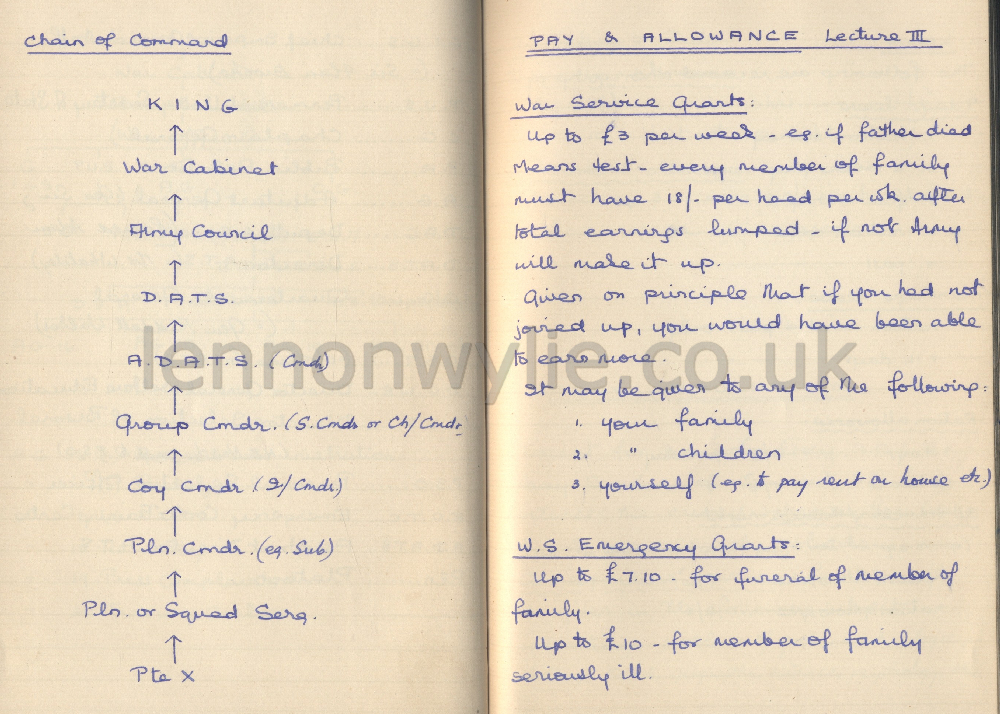 Chain of Command
KING
↑
War Cabinet
↑
Army Council
↑
D.A.T.S.
↑
A.D.A.T.S. (Cmdr)
↑
Group Cmdr. (S.Cmdr or Ch/Cmdr)
↑
Coy Cmdr (J/Cmdr)
↑
Pln. Cmdr. (eg. Sub)
↑
Pln. or Squad Serg.
↑
Pte X
PAY & ALLOWANCE Lecture III
War Service Grants:
Up to £3 per week - eg. if father died
Means test - every member of family
must have 18/- per head per wk. after
total earnings lumped - if not Army
will make it up.
Given on principle that if you had not
joined up, you would have been able
to earn more.
It may be given to any of the following:
1. your family
2. " children
3. yourself (eg. to pay rent on house etc.)
W.S. Emergency Grants:
Up to £7.10 - for funeral of member of
family.
Up to £10 - for member of family
seriously ill.
lennonwylie.co.uk